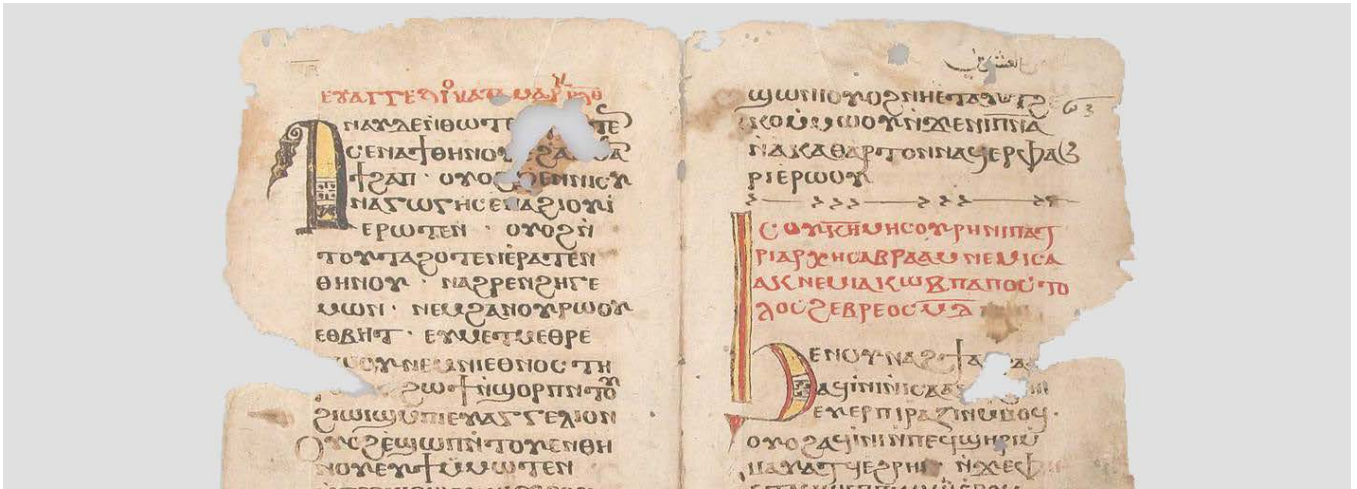 ⲉⲩⲁⲅⲅⲉⲗⲓ
ⲁⲛⲁⲩ ⲇⲉ ⲛⲑⲱⲧⲉ
ⲥⲉⲛⲁϯ ⲑⲏⲛⲟⲩ
ϯϩⲁⲡ · ⲟⲩⲟϩ ϧⲉⲛ ⲛⲓⲥⲩ
ⲛⲁⲅⲱⲅⲏ ⲥⲉⲛⲁϩⲓⲟⲩⲓ
ⲉⲣⲱⲧⲉⲛ · ⲟⲩⲟϩ ⲛ
ⲧⲟⲩⲧⲁϩⲟⲧⲉⲛ ⲉⲣⲁⲧⲉⲛ
ⲑⲏⲛⲟⲩ · ⲛⲁϩⲣⲉⲛ ϩⲏⲅⲉ
ⲙⲱⲛ · ⲛⲉⲙ ϩⲁⲛⲟⲩⲣⲱⲟⲩ
ⲉⲑⲃⲏⲧ · ⲉⲩⲙⲉⲧⲙⲉⲑⲣⲉ
ⲱⲟⲩ ⲛⲉⲙ ⲛⲓⲉⲑⲛⲟⲥ ⲧⲏ
ϩⲱϯ ⲛϣⲟⲣⲡ ⲛⲧⲟⲩ
ϩⲓⲱⲓϣ ⲙⲡⲓⲉⲩⲁⲅⲅⲉⲗⲓⲟⲛ
ⲟⲩⲟϩ ⲉϣⲱⲡ ⲛⲧⲟⲩⲉⲛ ⲑⲏ
ⲛⲟⲩ ⲉⲩϯ ⲙⲙⲱⲧⲉⲛ
ϣⲱⲛⲓ ⲟⲩⲟϩ ⲛⲏ ⲉⲧⲁⲩⲧϩⲉ
ⲙⲕⲱⲟⲩ ⲛϫⲉ ⲛⲓⲡⲛⲁ
ⲛⲁⲕⲁⲑⲁⲣⲧⲟⲛ ⲛⲁϥⲉⲣⲫⲁϧ
ⲣⲓ ⲉⲣⲱⲟⲩ
ⲥⲟⲩ ⲕⲏ ⲙⲏⲥⲟⲩⲣⲏ ⲛⲓⲡⲁⲧ
ⲣⲓⲁⲣⲭⲏⲥ ⲁⲃⲣⲁⲁⲙ ⲛⲉⲙ ⲓⲥⲁ
ⲁⲕ ⲛⲉⲙ ⲓⲁⲕⲱⲃ ⲡⲁⲡⲟⲥⲧⲟ
ⲗⲟⲥ ϩⲉⲃⲣⲉⲟⲥ ⲙⲁ
ϧⲉⲛ ⲟⲩⲛⲁϩϯ
ⲁϥⲓⲛⲓ ⲛⲓⲥⲁⲁⲕ
ⲉⲩⲉⲣⲡⲓⲣⲁⲍⲓⲛ ⲙⲙⲟϥ ·
ⲟⲩⲟϩ ⲁϥⲓⲛⲓ ⲙⲡⲉϥϣⲏⲣⲓ
ⲙⲙⲁⲩⲁⲧϥ ⲉϩⲣⲏⲓ · ⲛϫⲉ ⲫⲏ